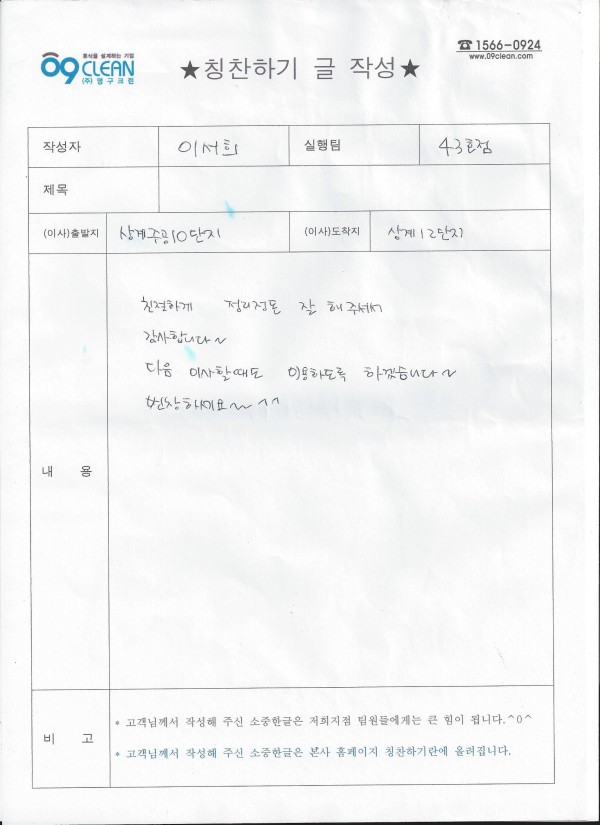 휴식을 설계하는 기업
09 CLEAN
(주)영구크린
★칭찬하기 글 작성★
☎ 1566-0924
www.09clean.com
작성자 이서희 실행팀 43호점
제목
(이사)출발지 상계주공10단지 (이사)도착지 상계12단지
내 용
친절하게 정리정돈 잘 해주셔서
감사합니다~
다음 이사할때도 이용하도록 하겠습니다~
번창하세요~ ^^
비 고
* 고객님께서 작성해 주신 소중한글은 저희지점 팀원들에게는 큰 힘이 됩니다.^0^
* 고객님께서 작성해 주신 소중한글은 본사 홈페이지 칭찬하기란에 올려집니다.